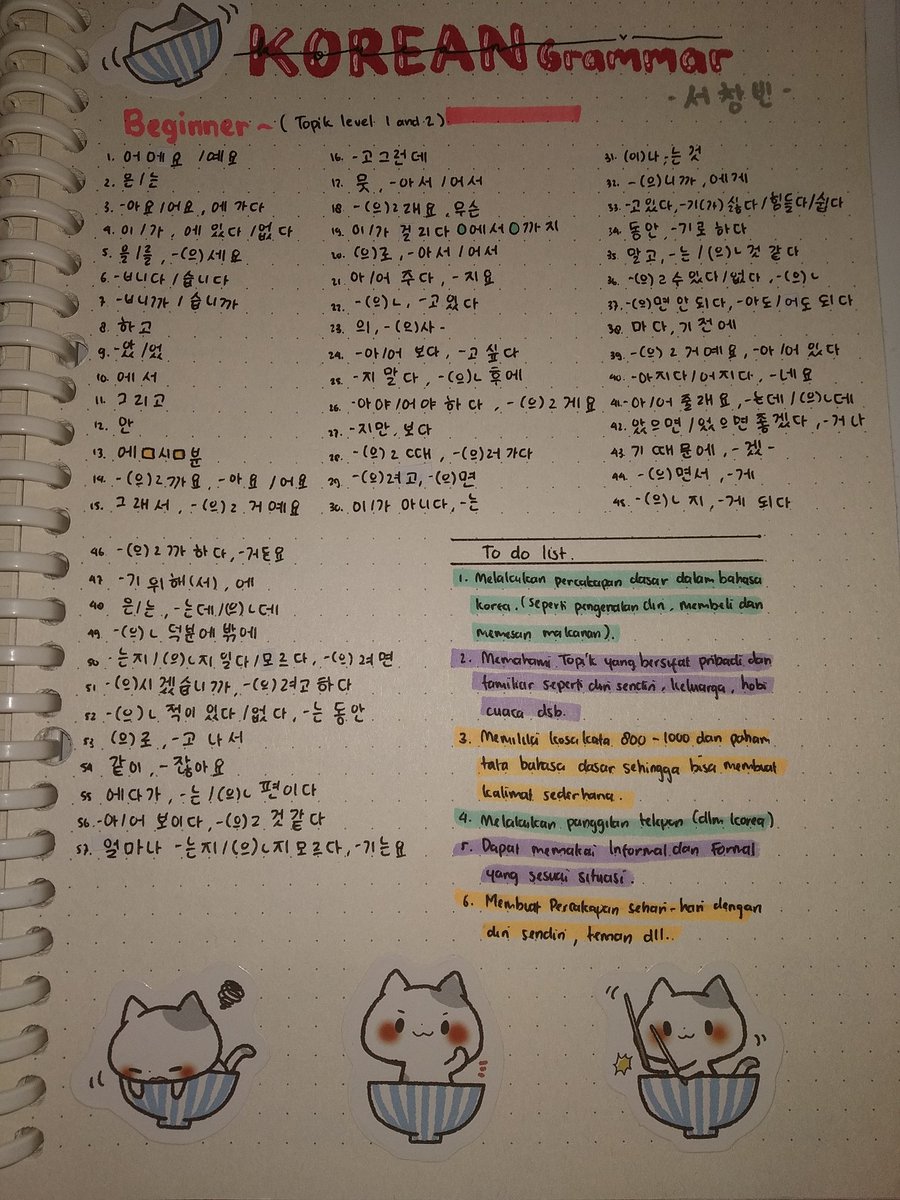 KOREAN Grammar
- 서창빈 -
Beginner ~ (Topik level 1 and 2)
1. 어에요 /예요
2. 은/는
3. -아요/어요, 에 가다
4. 이/가, 에 있다 /없다
5. 을/를, -(으)세요
6. -ㅂ니다/습니다
7. -ㅂ니까/습니까
8. 하고
9. -았/었
10. 에서
11. 그리고
12. 안
13. 에 시 분
14. -(으)ㄹ까요, -아요/어요
15. 그래서, -(으)ㄹ 거예요
16. -고 그런데
17. 못, -아서/어서
18. -(으)ㄹ래요, 무슨
19. 이/가 걸리다 에서 까지
20. (으)로, -아서/어서
21. 아/어 주다, -지요
22. -(으)ㄴ, -고 있다
23. 의, -(으)시-
24. -아/어 보다, -고 싶다
25. -지 말다, -(으)ㄴ 후에
26. -아야/어야 하다, -(으)ㄹ게요
27. -지만, 보다
28. -(으)ㄹ 때, -(으)러 가다
29. -(으)려고, -(으)면
30. 이/가 아니다, -는
31. (이)나, -는 것
32. -(으)니까, 에게
33. -고 있다, -기(가) 싫다/힘들다/쉽다
34. 동안, -기로 하다
35. 말고, -는/(으)ㄴ 것 같다
36. -(으)ㄹ 수 있다/없다, -(으)ㄴ
37. -(으)면 안 되다, -아도/어도 되다
38. 마다, 기 전에
39. -(으)ㄹ 거예요, -아/어 있다
40. -아지다/어지다, -네요
41. -아/어 줄래요, -는데/(으)ㄴ데
42. 았으면/었으면 좋겠다, -거나
43. 기 때문에, -겠-
44. -(으)면서, -게
45. -(으)ㄴ지, -게 되다
46. -(으)ㄹ까 하다, -거든요
47. -기 위해(서), 에
48. 은/는, -는데/(으)ㄴ데
49. -(으)ㄴ 덕분에 밖에
50. -는지/(으)ㄴ지 알다/모르다, -(으)려면
51. -(으)시겠습니까, -(으)려고 하다
52. -(으)ㄴ 적이 있다/없다, -는 동안
53. (으)로, -고 나서
54. 같이, -잖아요
55. 에다가, -는/(으)ㄴ 편이다
56. -아/어 보이다, -(으)ㄹ 것 같다
57. 얼마나 -는지/(으)ㄴ지 모르다, -기는요
To do list.
1. Melakukan percakapan dasar dalam bahasa
korea. (seperti pengenalan diri, membeli dan
memesan makanan).
2. Memahami Topik yang bersifat pribadi dan
familiar seperti diri sendiri, keluarga, hobi
cuaca dsb.
3. Memiliki kosa kata 800 - 1000 dan paham
tata bahasa dasar sehingga bisa membuat
kalimat sederhana.
4. Melakukan panggilan telepon (dlm korea)
5. Dapat memakai Informal dan Formal
yang sesuai situasi.
6. Membuat Percakapan sehari-hari dengan
diri sendiri, teman dll..